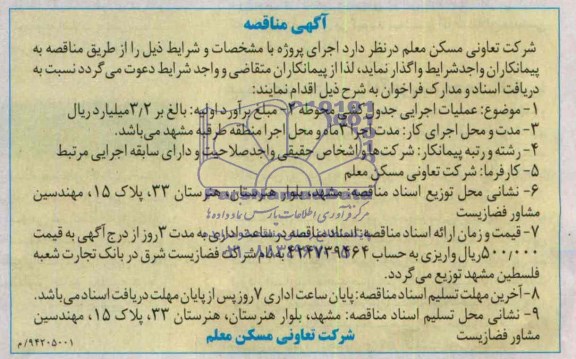 آگهی مناقصه
شرکت تعاونی مسکن معلم درنظر دارد اجرای پروژه با مشخصات و شرایط ذیل را از طریق مناقصه به
پیمانکاران واجدشرایط واگذار نماید، لذا از پیمانکاران متقاضی و واجد شرایط دعوت می گردد نسبت به
دریافت اسناد و مدارک فراخوان به شرح ذیل اقدام نمایند:
۱- موضوع: عملیات اجرایی جدول محوطه ۲- مبلغ برآورد اولیه: بالغ بر ۳/۲میلیارد ریال
۳- مدت و محل اجرای کار: مدت اجرا ۳ماه و محل اجرا منطقه طرقبه مشهد می‌باشد.
۴- رشته و رتبه پیمانکار: شرکت‌ها و اشخاص حقیقی واجدصلاحیت و دارای سابقه اجرایی مرتبط
۵- کارفرما: شرکت تعاونی مسکن معلم
۶- نشانی محل توزیع اسناد مناقصه: مشهد، بلوار هنرستان، هنرستان ۳۳، پلاک ۱۵، مهندسین
مشاور فضازیست
مرکز فرآوری اطلاعات پارس نماد داده‌ها
۷- قیمت و زمان ارائه اسناد مناقصه: اسناد مناقصه در ساعات اداری به مدت ۳روز از درج آگهی به قیمت
۵۰۰٫۰۰۰ریال واریزی به حساب به نام شرکت فضازیست شرق در بانک تجارت شعبه
فلسطین مشهد توزیع می‌گردد.
۸- آخرین مهلت تسلیم اسناد مناقصه: پایان ساعت اداری ۷روز پس از پایان مهلت دریافت اسناد می‌باشد.
۹- نشانی محل تسلیم اسناد مناقصه: مشهد، بلوار هنرستان، هنرستان ۳۳، پلاک ۱۵، مهندسین
مشاور فضازیست
شرکت تعاونی مسکن معلم
۹۴۲۰۵۰۰۱/م